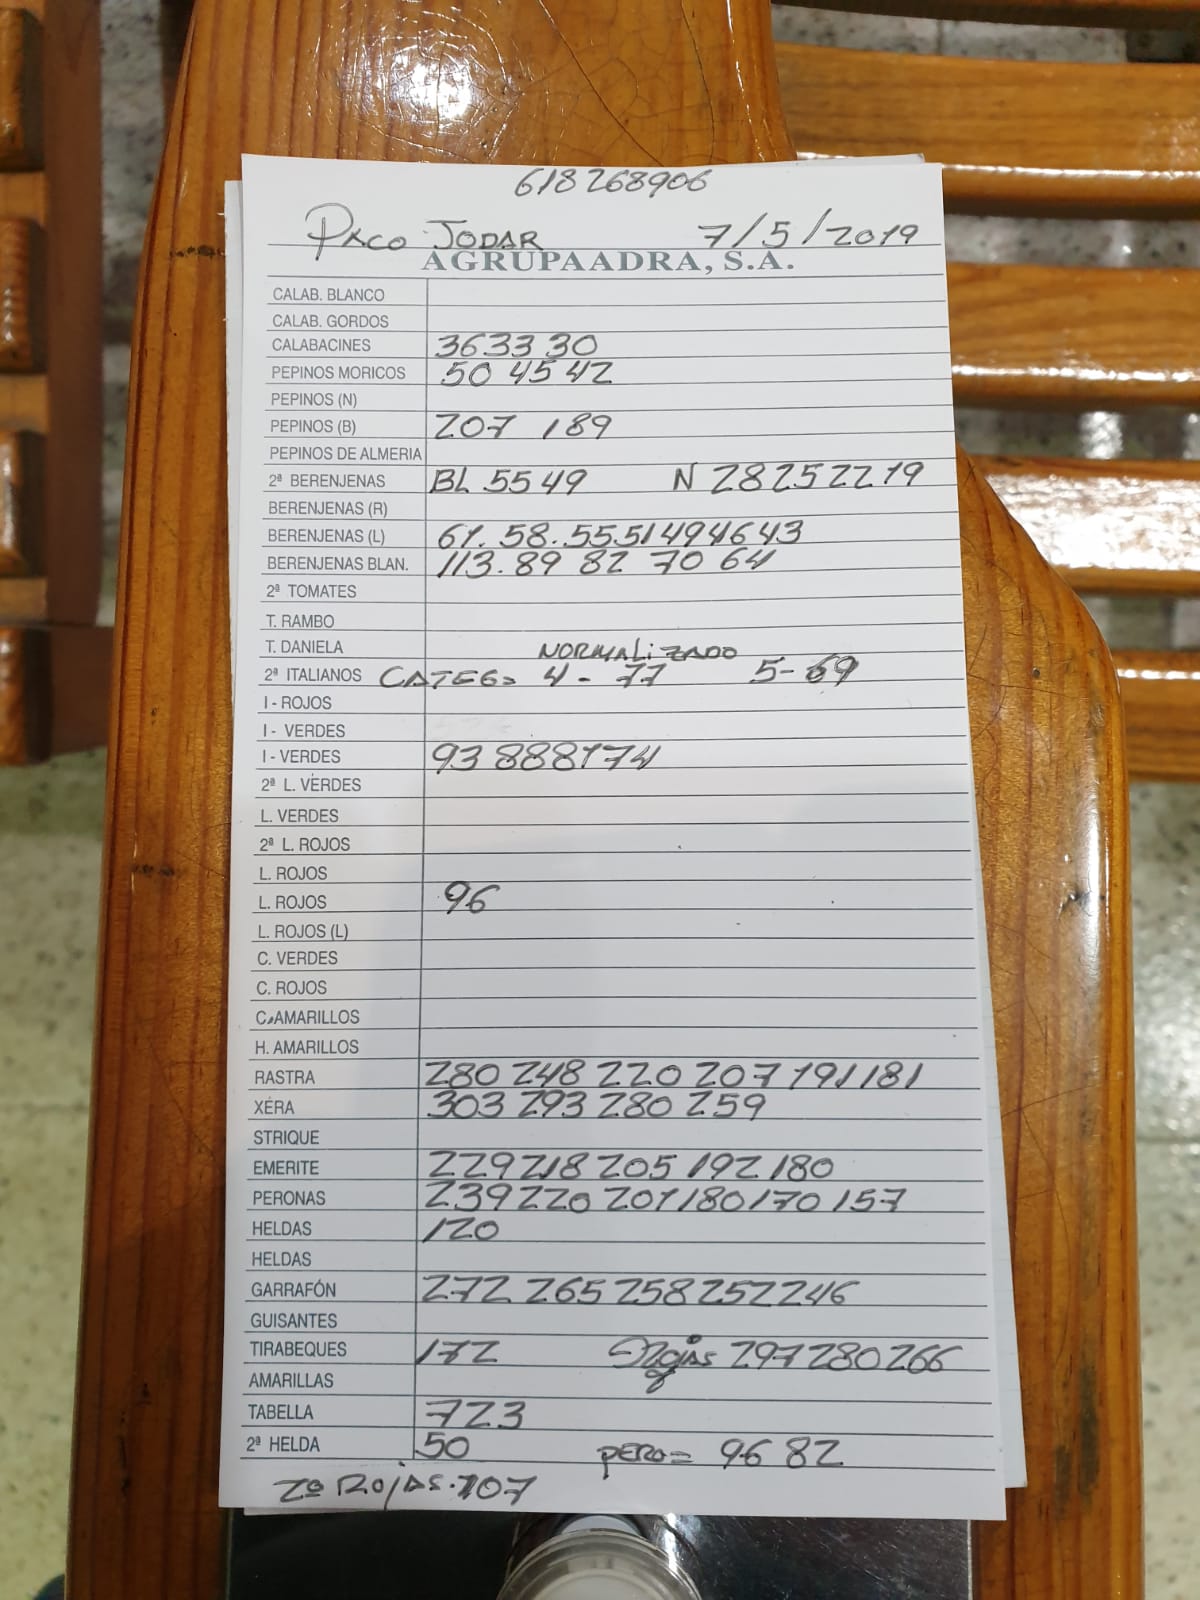 618268906
PACO JODAR 7/5/2019
AGRUPAADRA, S.A.
CALAB. BLANCO
CALAB. GORDOS
CALABACINES 36 33 30
PEPINOS MORICOS 50 45 42
PEPINOS (N)
PEPINOS (B) 207 189
PEPINOS DE ALMERIA
2ª BERENJENAS BL 55 49 N 28 25 22 19
BERENJENAS (R)
BERENJENAS (L) 61. 58. 55. 51 49 46 43
BERENJENAS BLAN. 113. 89 82 70 64
2ª TOMATES
T. RAMBO
T. DANIELA NORMALIZADO
2ª ITALIANOS CATEG> 4 - 77 5- 69
I - ROJOS
I - VERDES
I - VERDES 93 88 81 74
2ª L. VERDES
L. VERDES
2ª L. ROJOS
L. ROJOS
L. ROJOS 96
L. ROJOS (L)
C. VERDES
C. ROJOS
C. AMARILLOS
H. AMARILLOS
RASTRA 280 248 220 207 191 181
XERA 303 293 280 259
STRIQUE
EMERITE 229 218 205 192 180
PERONAS 239 220 201 180 170 157
HELDAS 120
HELDAS
GARRAFÓN 272 265 258 252 246
GUISANTES
TIRABEQUES 172 Rojas 297 280 266
AMARILLAS
TABELLA 723
2ª HELDA 50 PERO= 96 82
2ª ROJAS. 107